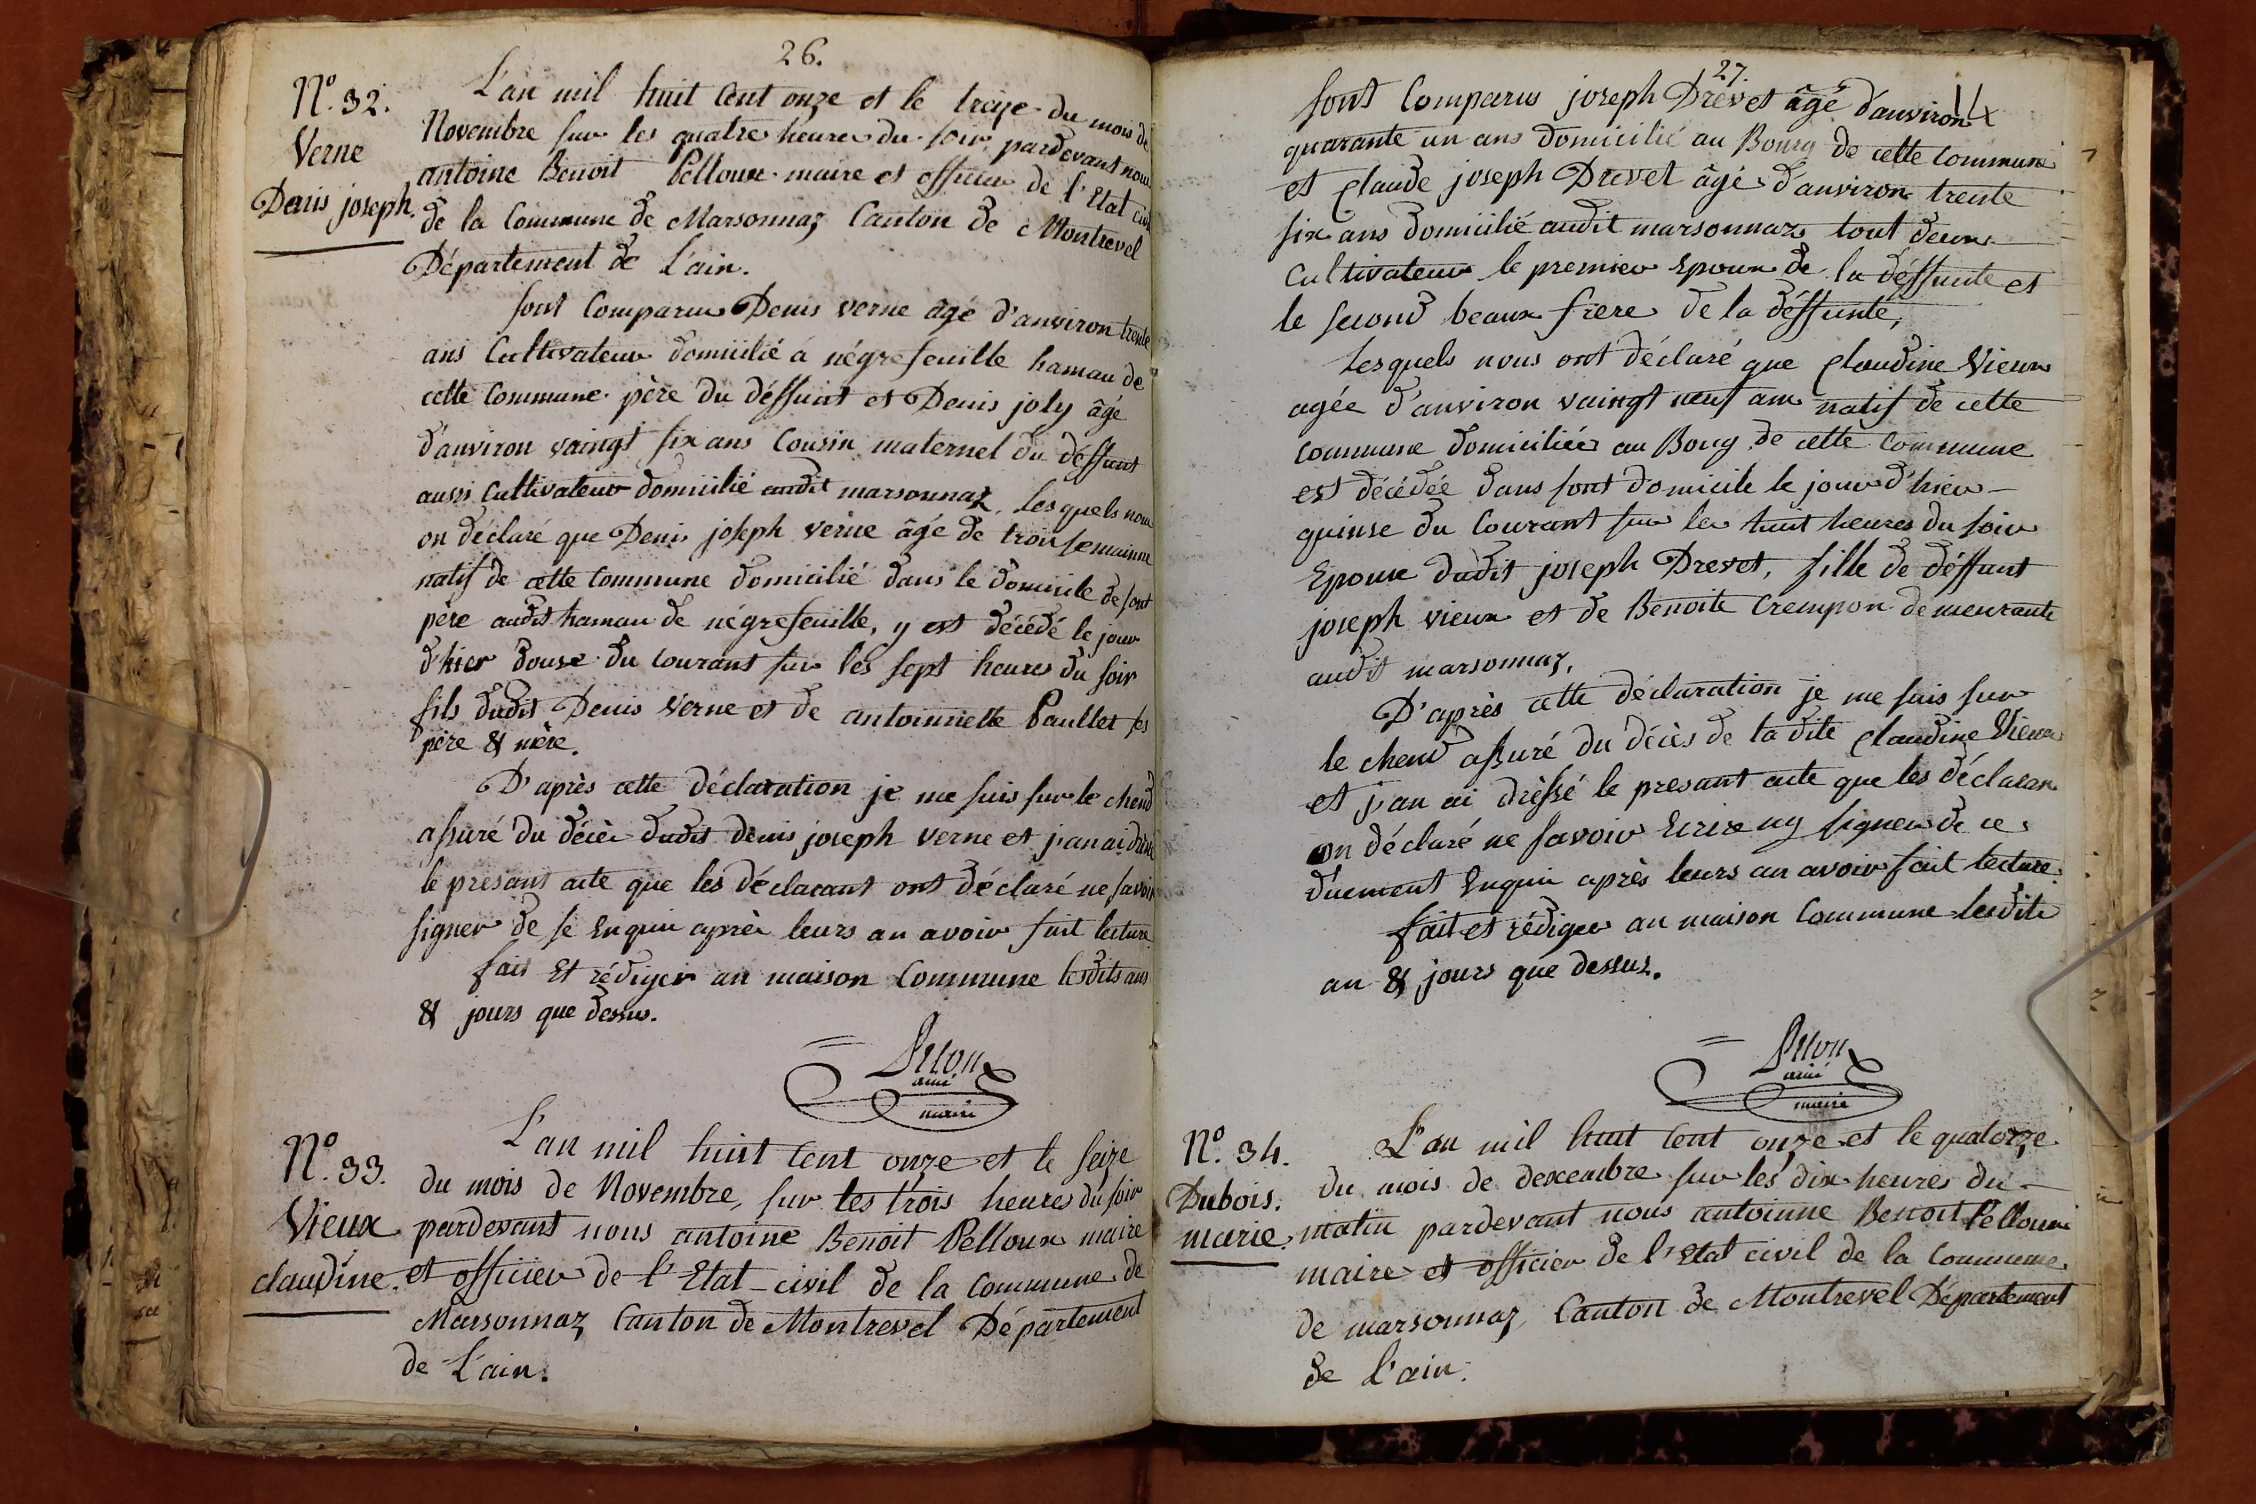 26.
N.º 32.
Verne
Denis joseph.
L'an mil huit cent onze et le treize du mois de
Novembre sur les quatre heure du soir pardevant nous
antoine Benoit Pelloux maire et officier de l'Etat civil
de la Commune de Marsonnaz Canton de Montrevel
Département de L'ain.
sont Comparus Denis verne âgé d'anviron trente
ans Cultivateur domicilié á négrefeuille hamau de
cette Commune père du déffunt et Denis joly âgé
d'anviron vaingt six ans Cousin maternel du déffunt
aussi Cultivateur domicilié audit marsonnaz. Les quels nous
on déclaré que Denis joseph verne âgé de trois semainne
natif de cette Commune domicilié dans le domicile de sont
père audit hamau de négrefeuille, y est décédé le jour
d'hier douse du courant sur les sept heures du soir
fils dudit Denis Verne et de antoinnette Paullet ses
père & mère.
D'après cette déclaration je me suis sur le chend
assuré du décès dudit denis joseph verne et j'an ai dréssé
le presant acte que les déclarant ont déclaré ne savoir
signer de se enquis après leurs an avoir fait lecture
fait Et rédiger an maison Commune lesdits ans
& jours que dessus.
Pelou
ainé
maire
N.º 33.
Vieux
claudine.
L'an mil huit cent onze et le seize
du mois de Novembre, sur les trois heures du soir
pardevant nous antoine Benoit Pelloux maire
et officier de l'Etat civil de la Commune de
Marsonnaz Canton de Montrevel Département
de L'ain.
27.
sont Comparus joseph Drevet âgé d'anviron
quarante un ans domicilié au Bourg de cette commune
et Claude joseph Drevet âgé d'anviron trente
six ans domicilié audit marsonnaz tout deux
Cultivateur le premier Epoux de la déffunte et
le second beaux frere de la déffunte,
Lesquels nous ont déclaré que Claudine Vieux
agée d'anviron vaingt neuf ans natif de cette
commune domiciliée au Boug de cette Commune
est décédée dans sont domicile le jour d'hier
quinse du Courant sur les huit heures du soir
Epouse dudit joseph Drevet, fille de déffunt
joseph vieux et de Benoite Crempon demeurante
audit marsonnaz,
D'après cette déclaration je me suis sur
le chend assuré du décès de la dite Claudine Vieux
et j'an ai dréssé le presant acte que les déclaran
on déclaré ne savoir Ecrire ny signer de ce
duement Enquis après leurs an avoir fait lecture.
fait et rédiger an maison Commune lesdits
an & jours que dessus.
Pelou
ainé
maire
N.º 34.
Dubois.
marie.
L'an mil huit cent onze et le quatorze
du mois de dexcembre sur les dix heures du
matin pardevant nous antoinne Benoit Pelloux
maire et officier de l'Etat civil de la Commune
de marsonnaz, Canton de Montrevel Département
de L'ain.